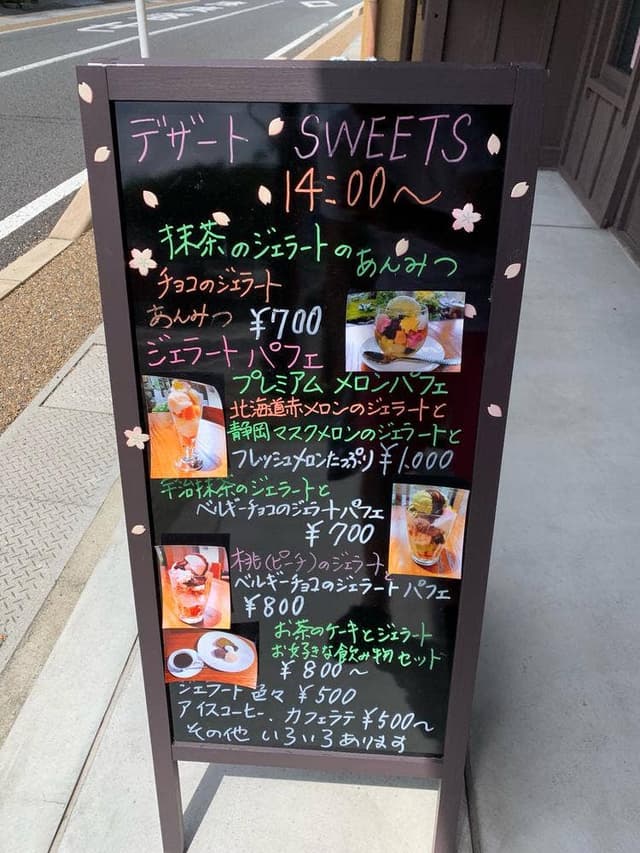 デザート SWEETS
14:00～
抹茶のジェラートの
あんみつ
チョコのジェラート
あんみつ ¥700
ジェラート パフェ
プレミアム メロンパフェ
北海道赤メロンのジェラートと
静岡マスクメロンのジェラートと
フレッシュメロンたっぷり ¥1,000
宇治抹茶のジェラートと
ベルギーチョコのジェラートパフェ
¥700
桃(ピーチ)のジェラートと
ベルギーチョコのジェラート パフェ
¥800
お茶のケーキとジェラート
お好きな飲み物セット
¥800～
ジェラート 色々 ¥500
アイスコーヒー、カフェラテ ¥500～
その他 いろいろあります